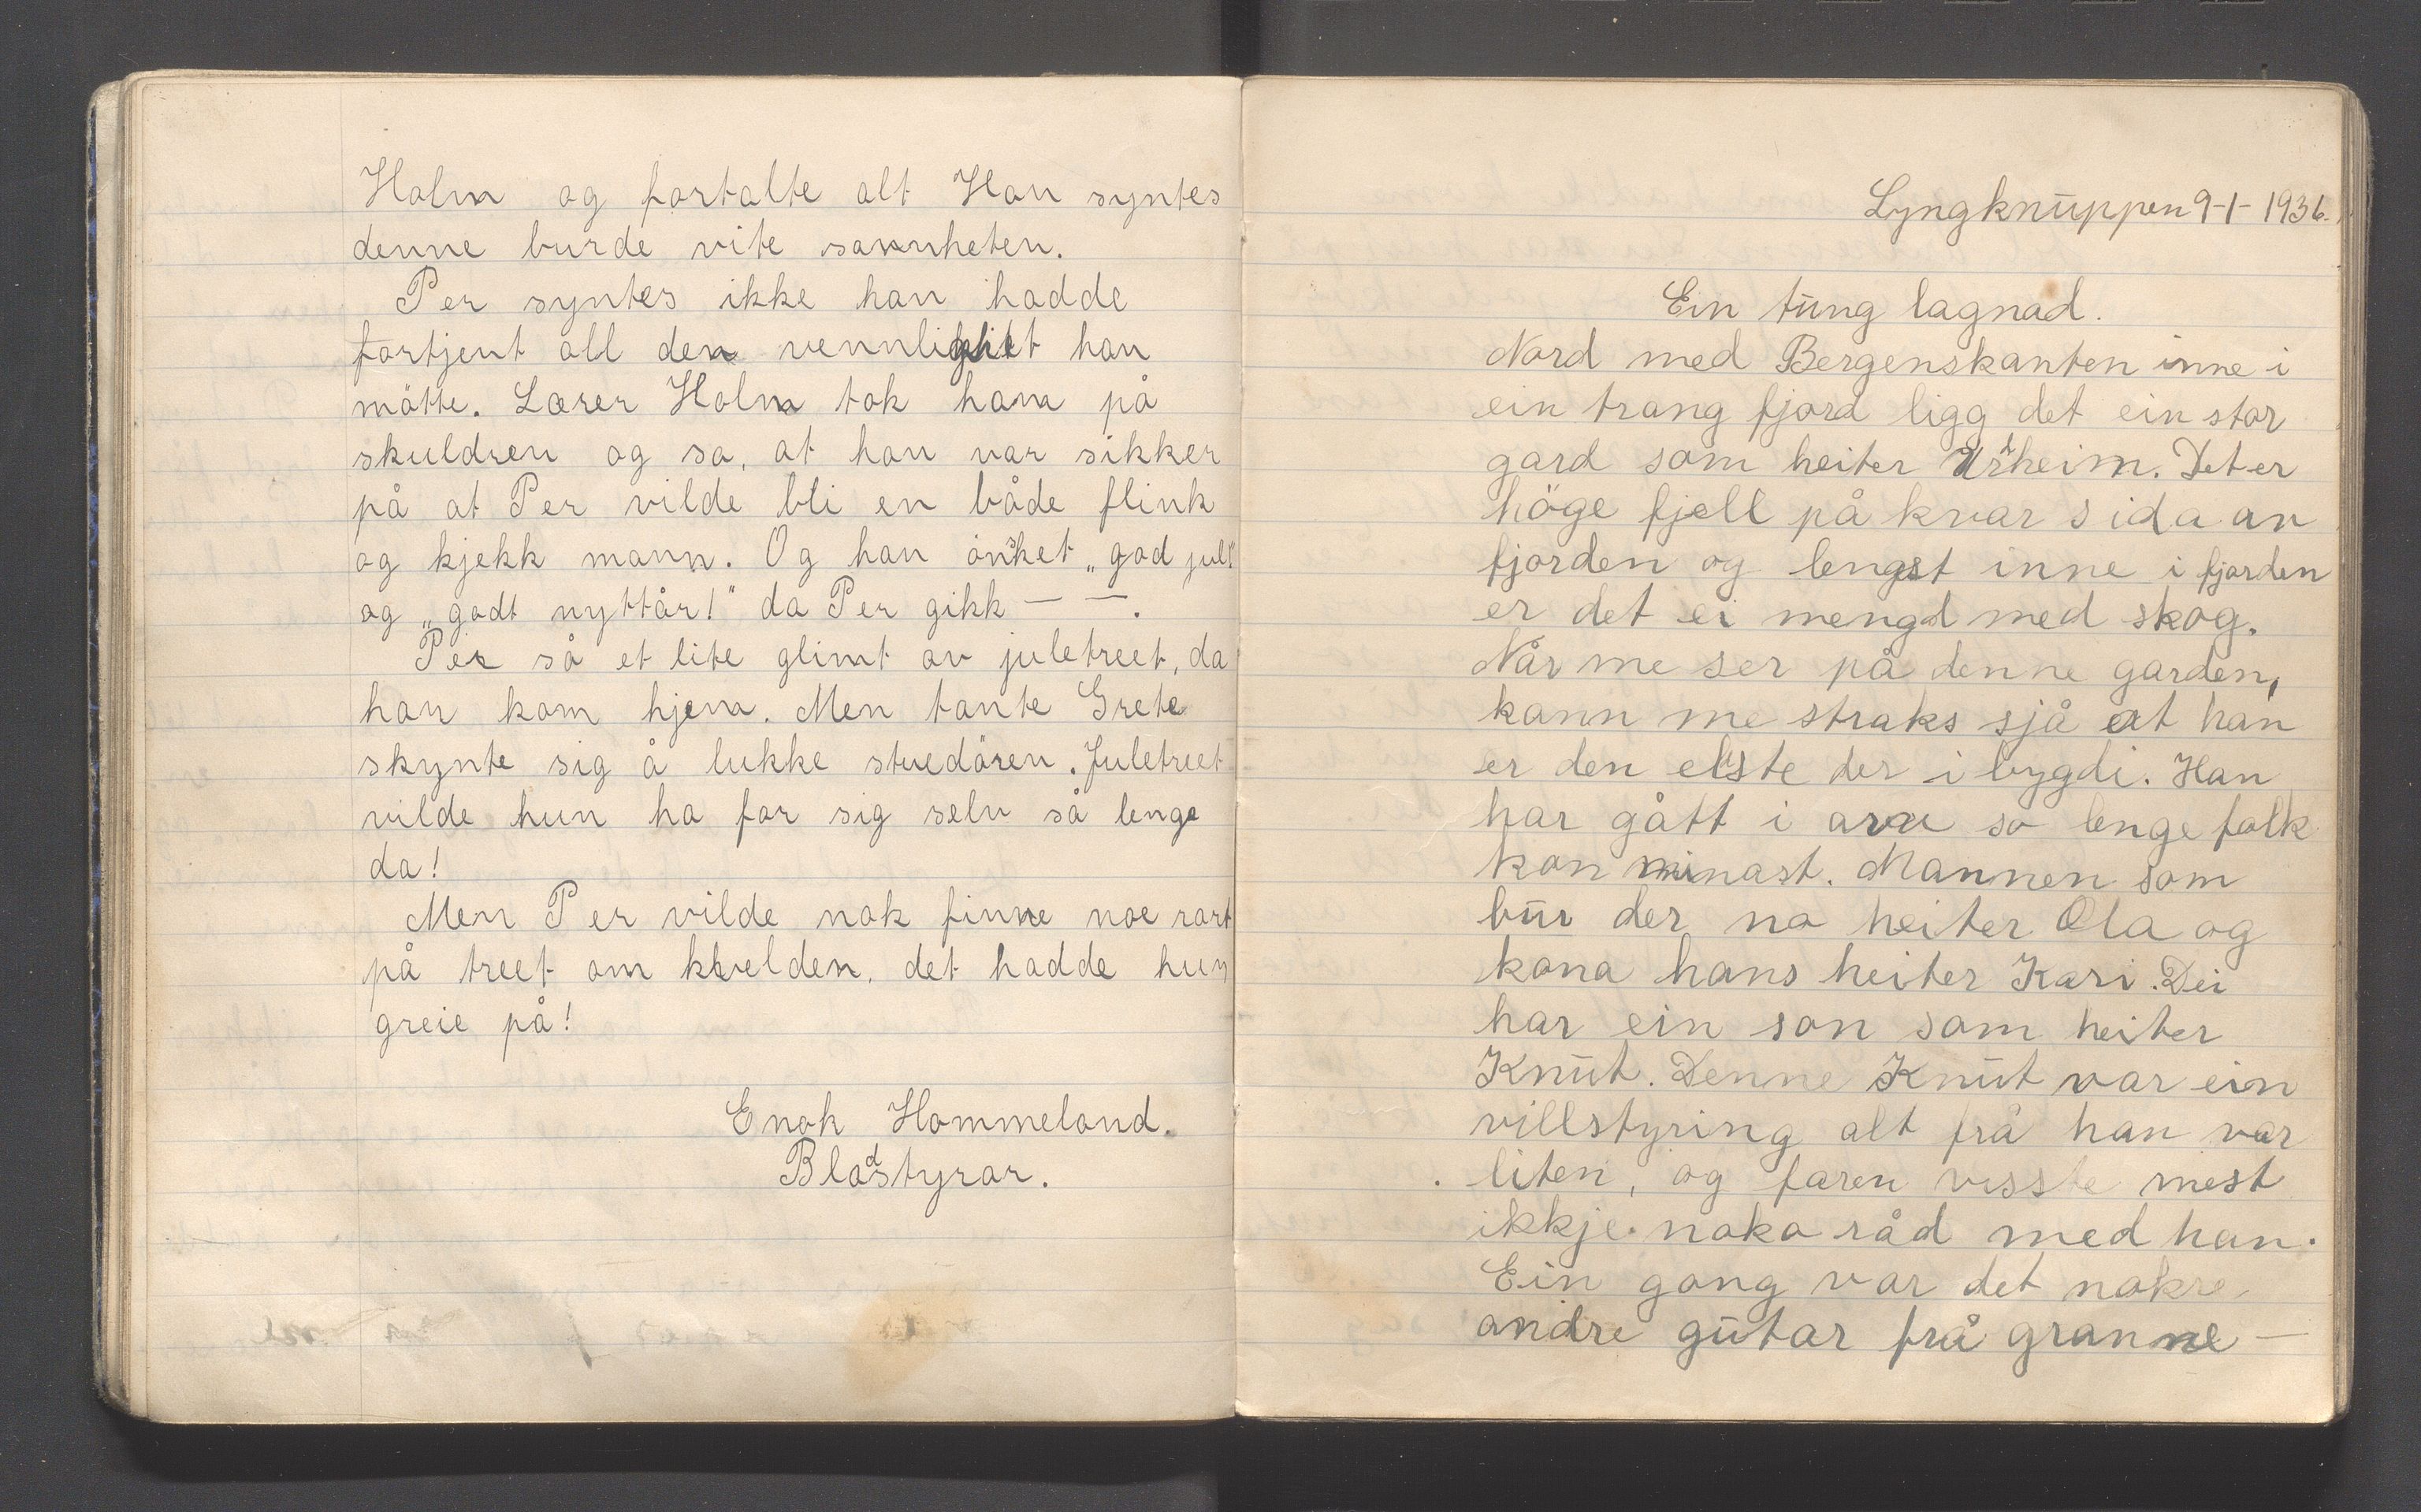 Holm og fortalte alt Han syntes
denne burde vite sannheten.
Per syntes ikke han hadde
fortjent all den vennlighet han
mötte. Lærer Holm tok ham på
skuldren og sa, at han var sikker
på at Per vilde bli en både flink
og kjekk mann. Og han önsket „god jul!"
og „godt nyttår!" da Per gikk — —.
Per så et lite glimt av juletreet, da
han kom hjem. Men tante Grete
skynte sig å lukke stuedören. Juletreet
vilde hun ha for sig selv så lenge
da!
Men Per vilde nok finne noe rart
på treet om kvelden, det hadde hun
greie på!
Enok Hommeland.
Bladstyrar.
Lyngknūppen 9-1-1936.
Ein tūng lagnad.
Nord med Bergenskanten inne i
ein trang fjord ligg det ein stor
gard som heiter Urheim. Det er
höge fjell på kvar sida av
fjorden og lengst inne i fjorden
er det ei mengd med skog.
Når me ser på denne garden,
kann me straks sjå at han
er den elste der i bygdi. Han
har gått i arv so lenge folk
kan minast. Mannen som
būr der no heiter Ola og
kona hans heiter Kari. Dei
har ein son som heiter
Knūt. Denne Knūt var ein
villstyring alt frå han var
liten, og faren visste mest
ikkje noko råd med han.
Ein gong var det nokre
andre gūtar frå granne —